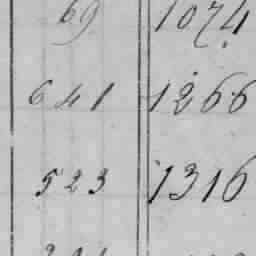 69 1074
641 1266
523 1316